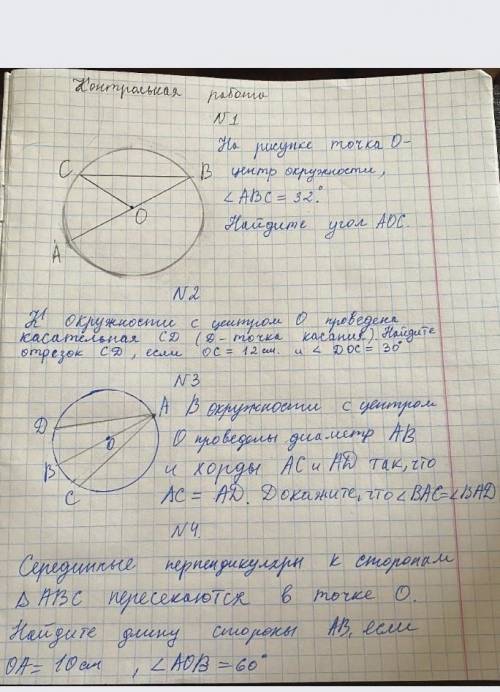 Контрольная работа
N1
На рисунке точка О-
центр окружности,
∠ABC = 32°
Найдите угол AOC.
C
B
O
A
N2
К окружности с центром О проведена
касательная CD (D - точка касания). Найдите
отрезок CD, если OC = 12 см. и ∠ DOC = 30°
N3
В окружности с центром
О проведены диаметр AB
и хорды AC и AD так, что
AC = AD. Докажите, что ∠BAC=∠BAD
A
D
O
B
C
N4.
Серединные перпендикуляры к сторонам
△ ABC пересекаются в точке О.
Найдите длину стороны AB, если
OA = 10 см, ∠AOB = 60°